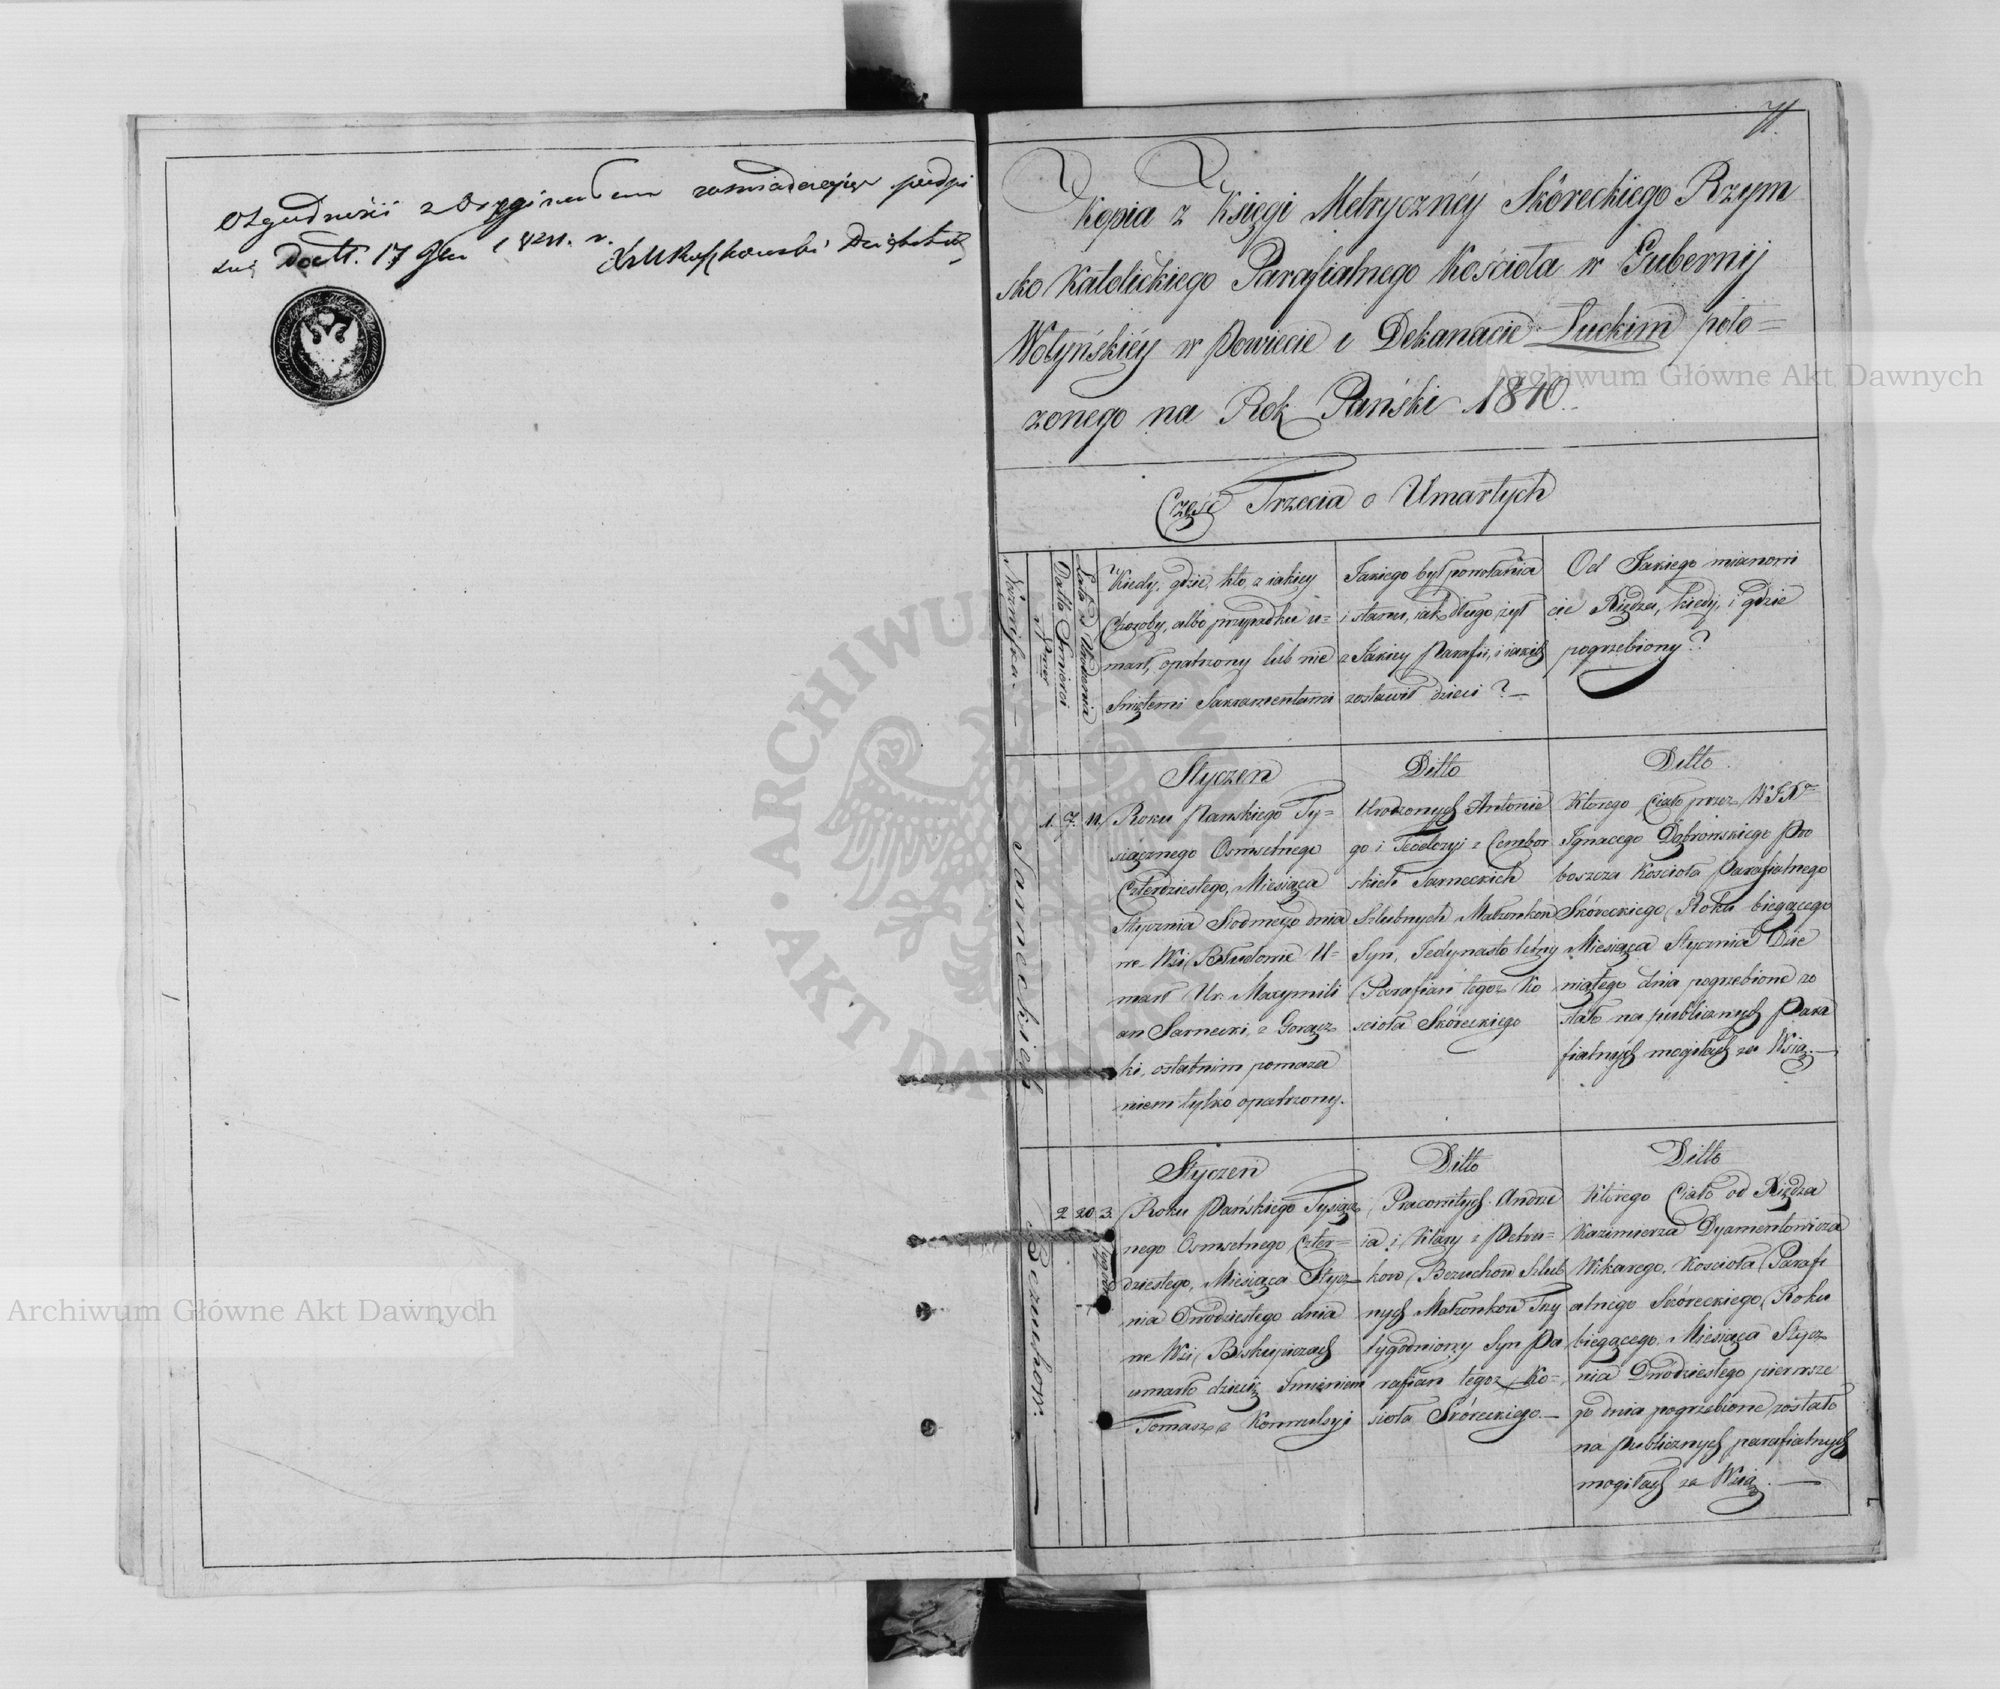 O zgodności z Oryginałem zaswiadczając podpi
Datt. 17
71.
Kopia z Księgi Metrycznéy Skóreckiego Rzym
sko Katolickiego Parafialnego Kościoła w Gubernij
Wołyńskiéy w Powiecie i Dekanacie Łuckim poło=
zonego na Rok Pański 1840.
Część Trzecia o Umarłych
Nróżnijka
Numer
Datta Smierci
Lata Urodzenia
Kiedy, gdzie, kto, z iakiey
Choroby, albo przypadku u=
marł, opatrzony lub nie
Swiętemi Sakramentami
Jakiego był powołania
i stanu, iak długo żył
z Jakiey Parafii, i iakich
zostawił dzieci ? —
Od Jakiego mianowi
cie Xiędza, kiedy, i gdzie
pogrzebiony ?
Sarneckich
1. 7. 11.
Styczeń
Roku Pańskiego Ty=
siącznego Osmsetnego
Czterdziestego, Miesiąca
Stycznia Siodmego dnia
we Wsi Błudowie U=
marł Ur: Maxymili
an Sarnecki, z Gorącz
ki, ostatnim pomaza
niem tylko opatrzony.
Ditto
Urodzonych Antonie
go i Teodozyi z Cembor
skich Sarneckich
Szlubnych Małżonków
Syn, Jedynasto letny
Parafian tegoż Ko
scioła Skóreckiego
Ditto.
Ktorego Ciało przez W. J. X.
Ignacego Dąbrowskiego Pro
boszcza Kościoła Parafialnego
Skóreckiego Roku biegącego
Miesiąca Stycznia Dzie
wiątego dnia pogrzebione zo
stało na publicznych Para
fialnych mogiłach za Wsią. —
Bezuchow:
2 20 3.
Styczeń
Roku Pańskiego Tysiącz
nego Osmsetnego Czter=
dziestego, Miesiąca Stycz
nia Dwódziestego dnia
we Wsi Biskupiczach
umarło dziecię Imieniem
Tomasz z Konwulsyi
Ditto
Pracowitych Andrze
ia i Klary z Petru=
kow Bezuchow Szlub
nych Małżonkow Trzy
tygodniowy Syn Pa
rafian tegoż Ko=
scioła Skóreckiego. —
Ditto
Którego Ciało od Xiędza
Kazimierza Dyamentowicza
Wikarego Kościoła Parafi
alnego Skóreckiego Roku
biegącego Miesiąca Stycz
nia Dwódziestego pierwsze
go dnia pogrzebione zostało
na Publicznych parafialnych
mogiłach za Wsią. —
Archiwum Główne Akt Dawnych
Archiwum Główne Akt Dawnych
ARCHIWUM GŁÓWNE · AKT DAWNYCH ·